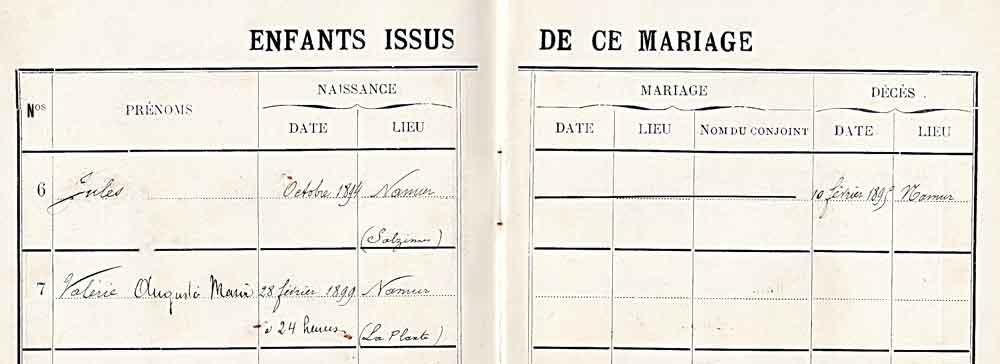 ENFANTS ISSUS DE CE MARIAGE
Nos PRÉNOMS NAISSANCE MARIAGE DÉCÈS.
DATE LIEU DATE LIEU NOM DU CONJOINT DATE LIEU
6 Jules Octobre 1894 Namur 10 février 1895 Namur
(Salzinnes)
7 Valérie Augusta Marie 28 février 1899 Namur
à 24 heures (La Plante)